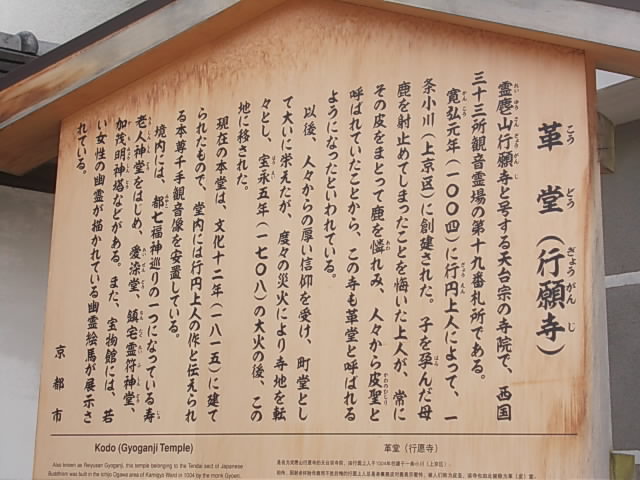 革堂（行願寺）
こうどう ぎょうがんじ
霊麀山行願寺と号する天台宗の寺院で、西国
三十三所観音霊場の第十九番札所である。
寛弘元年（一〇〇四）に行円上人によって、一
条小川（上京区）に創建された。子を孕んだ母
鹿を射止めてしまったことを悔いた上人が、常に
その皮をまとって鹿を憐れみ、人々から皮聖と
呼ばれていたことから、この寺も革堂と呼ばれる
ようになったといわれている。
以後、人々からの厚い信仰を受け、町堂とし
て大いに栄えたが、度々の災火により寺地を転
々とし、宝永五年（一七〇八）の大火の後、この
地に移された。
現在の本堂は、文化十二年（一八一五）に建て
られたもので、堂内には行円上人の作と伝えられ
る本尊千手観音像を安置している。
境内には、都七福神巡りの一つになっている寿
老人神堂をはじめ、愛染堂、鎮宅霊符神堂、
加茂明神塔などがある。また、宝物館には、若
い女性の幽霊が描かれている幽霊絵馬が展示さ
れている。
京都市
Kodo (Gyoganji Temple)
Also known as Reiyusan Gyoganji, this temple belonging to the Tendai sect of Japanese
Buddhism was built in the Ichijo Ogawa area of Kamigyo Ward in 1004 by the monk Gyoen.
革堂（行愿寺）